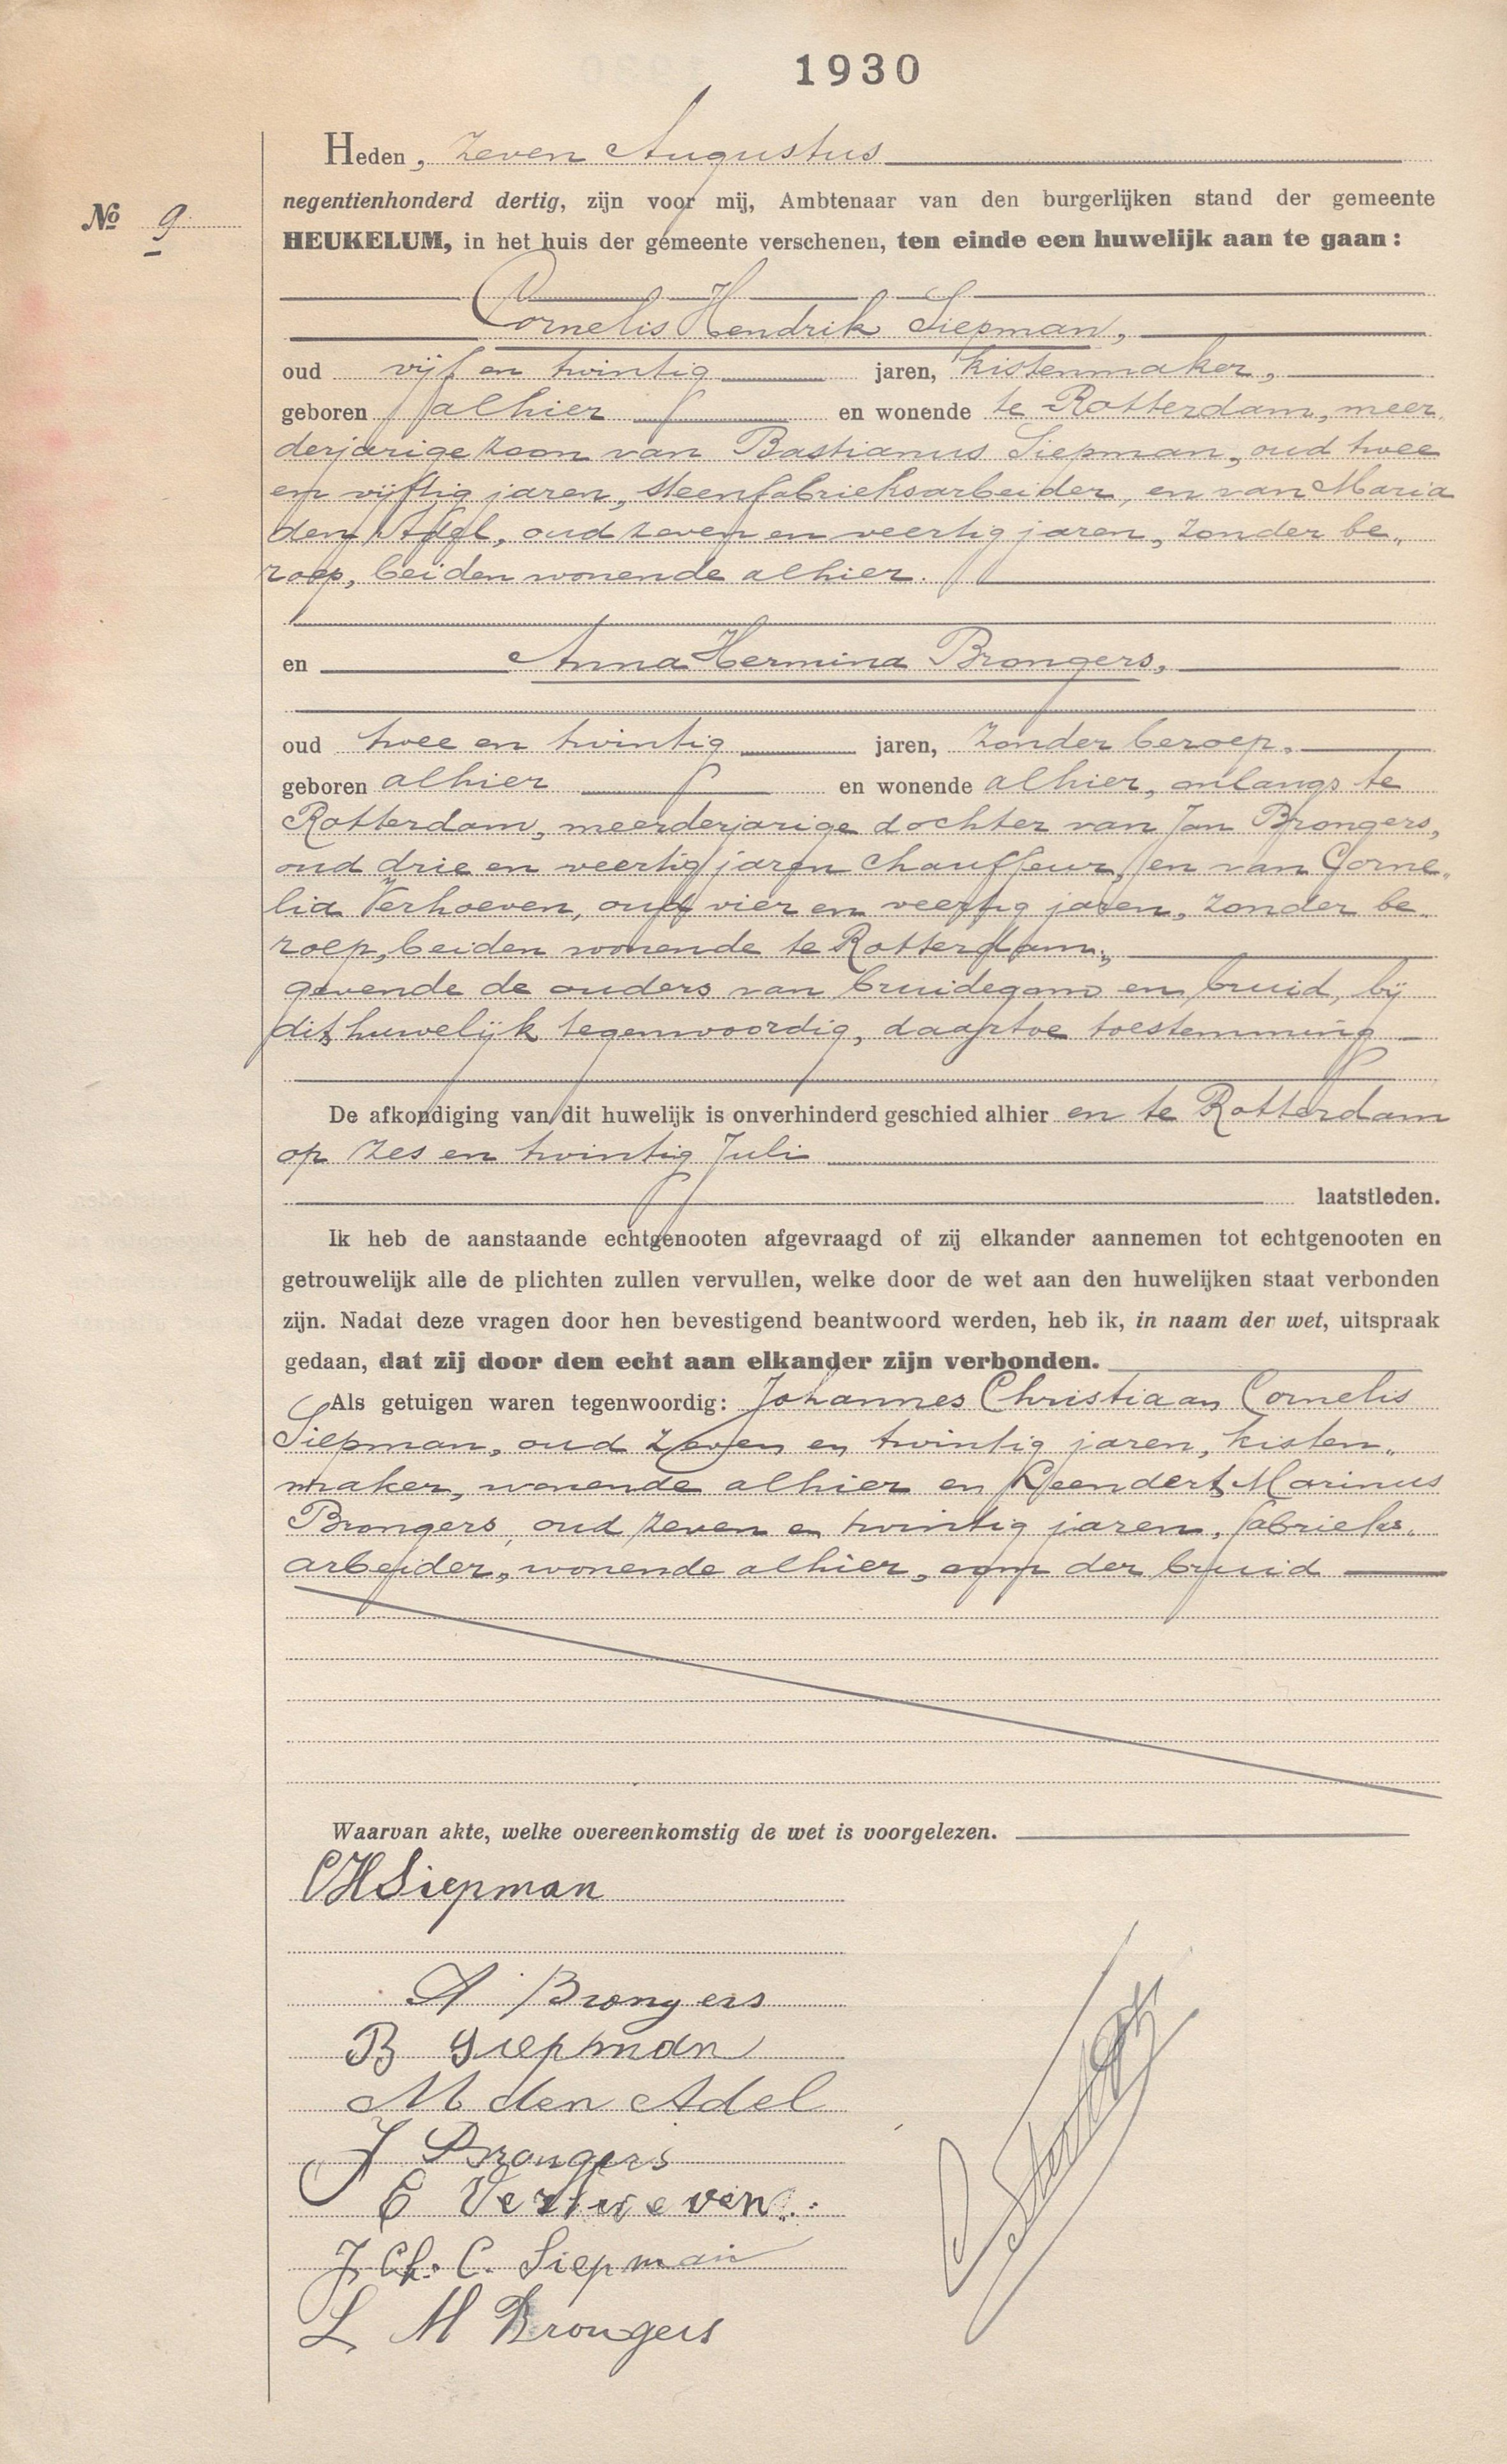 1930
Heden, zeven Augustus
negentienhonderd dertig, zijn voor mij, Ambtenaar van den burgerlijken stand der gemeente
No 9
HEUKELUM, in het huis der gemeente verschenen, ten einde een huwelijk aan te gaan:
Cornelis Hendrik Siepman,
oud vijf en twintig jaren, kistenmaker,
geboren alhier en wonende te Rotterdam, meer„
derjarige zoon van Bastianus Siepman, oud twee
en vijftig jaren, steenfabrieksarbeider, en van Maria
den Adel, oud zeven en veertig jaren, zonder be„
roep, beiden wonende alhier.
en Anna Hermina Brongers,
oud twee en twintig jaren, zonder beroep,
geboren alhier en wonende alhier, onlangs te
Rotterdam, meerderjarige dochter van Jan Brongers,
oud drie en veertig jaren chauffeur, en van Corne„
lia Verhoeven, oud vier en veertig jaren, zonder be„
roep, beiden wonende te Rotterdam,
gevende de ouders van bruidegom en bruid, bij
dit huwelijk tegenwoordig, daartoe toestemming
De afkondiging van dit huwelijk is onverhinderd geschied alhier en te Rotterdam
op zes en twintig Juli
laatstleden.
Ik heb de aanstaande echtgenooten afgevraagd of zij elkander aannemen tot echtgenooten en
getrouwelijk alle de plichten zullen vervullen, welke door de wet aan den huwelijken staat verbonden
zijn. Nadat deze vragen door hen bevestigend beantwoord werden, heb ik, in naam der wet, uitspraak
gedaan, dat zij door den echt aan elkander zijn verbonden.
Als getuigen waren tegenwoordig: Johannes Christiaan Cornelis
Siepman, oud zeven en twintig jaren, kisten„
maker, wonende alhier en Leendert Marinus
Brongers, oud zeven en twintig jaren, fabrieks„
arbeider, wonende alhier, oom der bruid
Waarvan akte, welke overeenkomstig de wet is voorgelezen.
CHSiepman
A Brongers
B Siepman
M den Adel
J Brongers
C Verhoeven
J. Ch. C. Siepman
L M Brongers